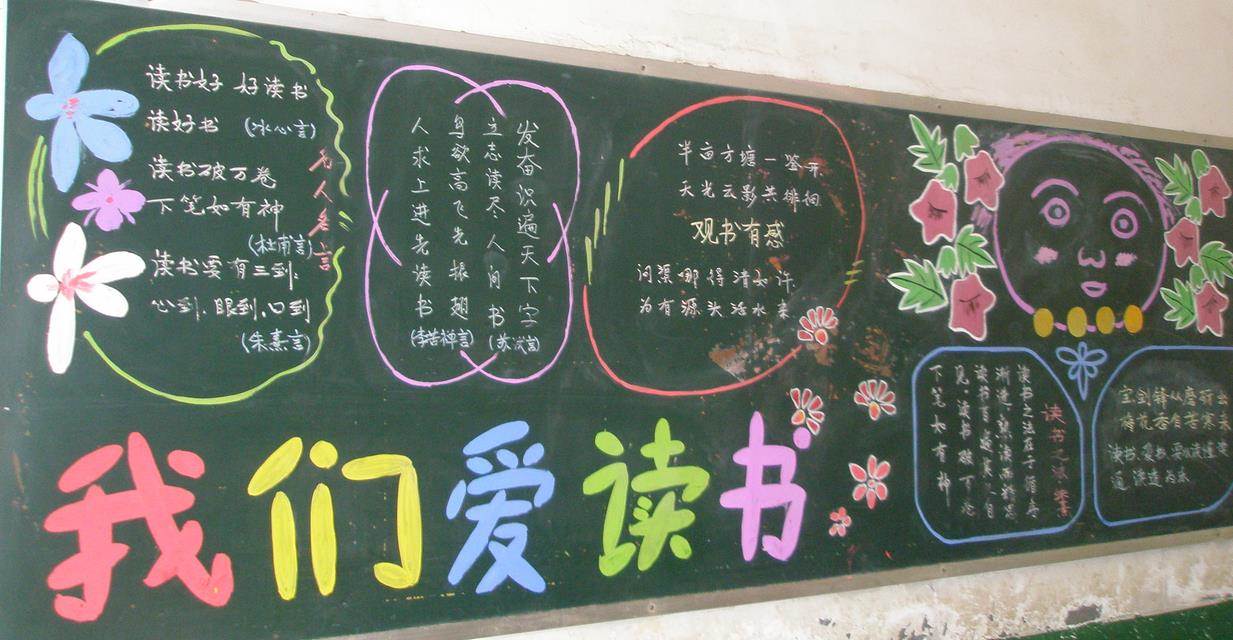 读书好 好读书
读好书 (冰心言)
读书破万卷
下笔如有神
(杜甫言)
读书要有三到:
心到.眼到.口到
(朱熹言)
名人名言
发奋识遍天下字
立志读尽人间书
(苏轼言)
鸟欲高飞先振翅
人求上进先读书
(李苦禅言)
半亩方塘一鉴开
天光云影共徘徊
观书有感
问渠哪得清如许
为有源头活水来
我们爱读书
读书之法
读书之法在于循序
渐进,熟读而精思
读书百遍其义自
见.读书破
下笔如有神
宝剑锋从磨砺出
梅花香自苦寒来
读书、爱书、要